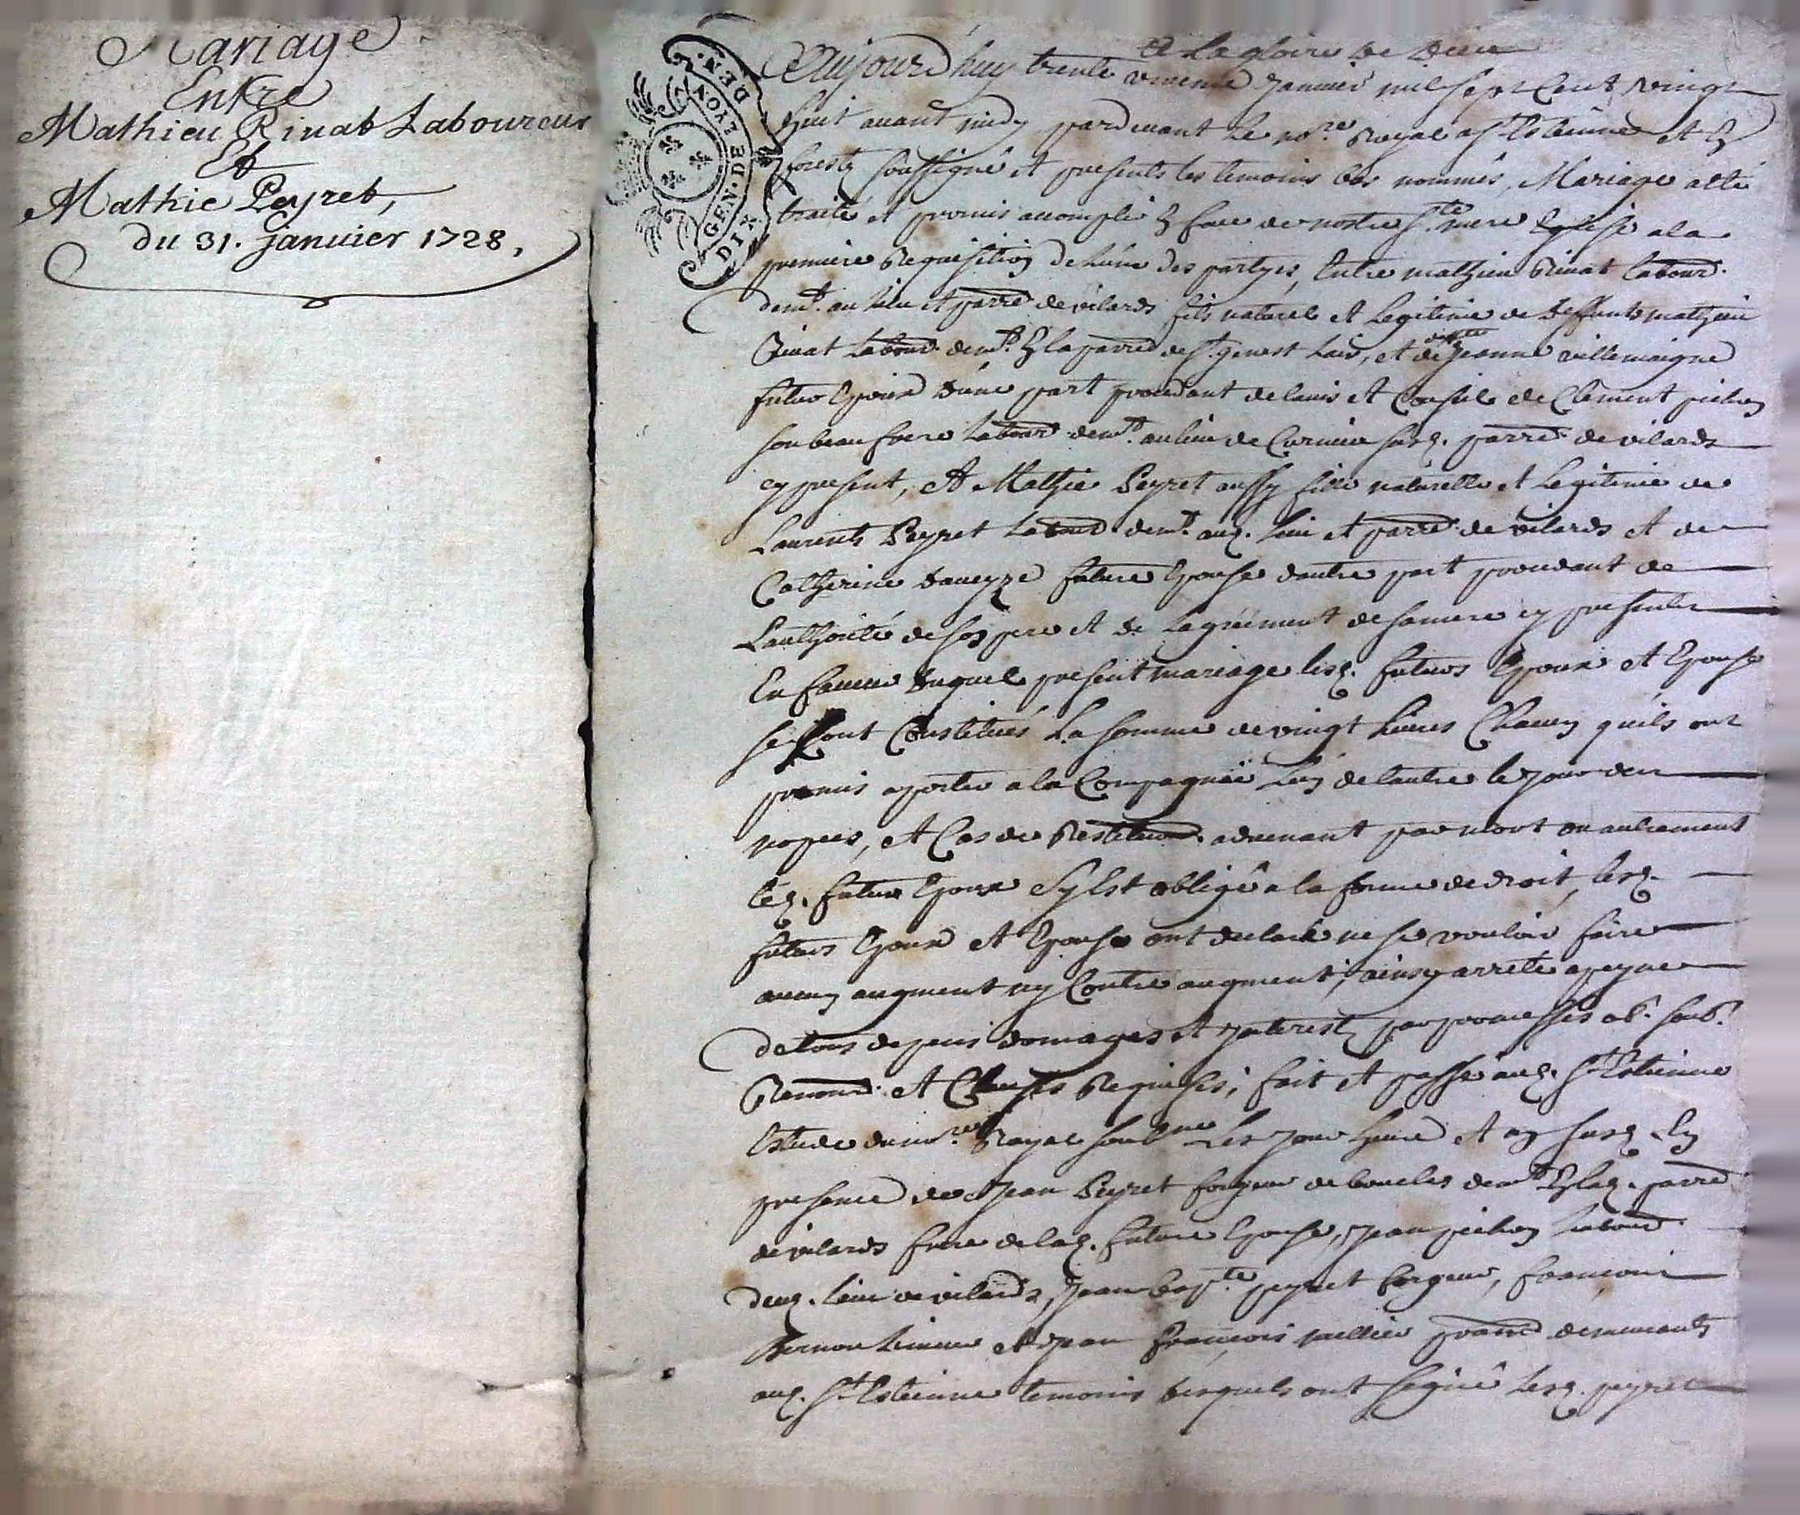 Mariage
Entre
Mathieu Rivat Laboureur
Et
Mathie Peyret,
du 31. janvier 1728,
GEN. DE LYON
DIX DEN.
A La gloire de Dieu
Aujourd'huy trente unieme Janvier mil sept Cent vingt
huit avant midy pardevant le no.re Royal a St Estienne et En
forestz soussigné et presents les temoins bas nommés, Mariage a eté
traité et promis accomplir En face de nostre Ste mere Eglise a la
premiere Requisition de l'une des partyes, Entre mathieu Rivat labour.
demt. au lieu et parre de vilards fils naturel et Legitime de deffunts mathieu
Rivat Labour. demt. En la parre de St genest Lerp, et de Jeanne villemaigne
futur Epoux d'une part procedant de lavis et Conseil de Clement pichon
son beau frere labour demt. au lieu de Curnieu susd. parre de vilards
cy present, Et Mathie Peyret aussy fille naturelle et Legitime de
Laurents Peyret Labour demt. aud. lieu et parre de vilards et de
Catherine daveyze future Epouse dautre part procedant de
Lauthorité de son pere et de Lagrément de sa mere cy presents
En faveur duquel present mariage lesd. futurs Epoux et Epouse
se sont Constitués La somme de vingt livres Chacun quils ont
promis aporter a la Compagnïe Lun de lautre le jour des
nopces, et Cas de Restitution advenant par mort ou autrement
led. futur Epoux sy Est obligé a la forme de droit, lesd.
futurs Epoux et Epouse ont declaré ne se vouloir faire
aucun augment ny Contre augment; ainsy arreté a peyne
de tous depens domages et Interests par promesses ob. soub.
Renond. et Clauses Requises; fait et passé aud. St Estienne
Estude du no.re Royal soub.ne Les jour heure et an susd. En
presence de Jean Peyret forgeur de boucles demt En lad. parre
de vilards frere de lad. future Epouse, Jean pichon labour
dud. lieu de vilards, Jean bapte. peyret forgeur, francois
et Jean francois demeurants
aud. St Estienne temoins desquels ont signé Lesd. peyret